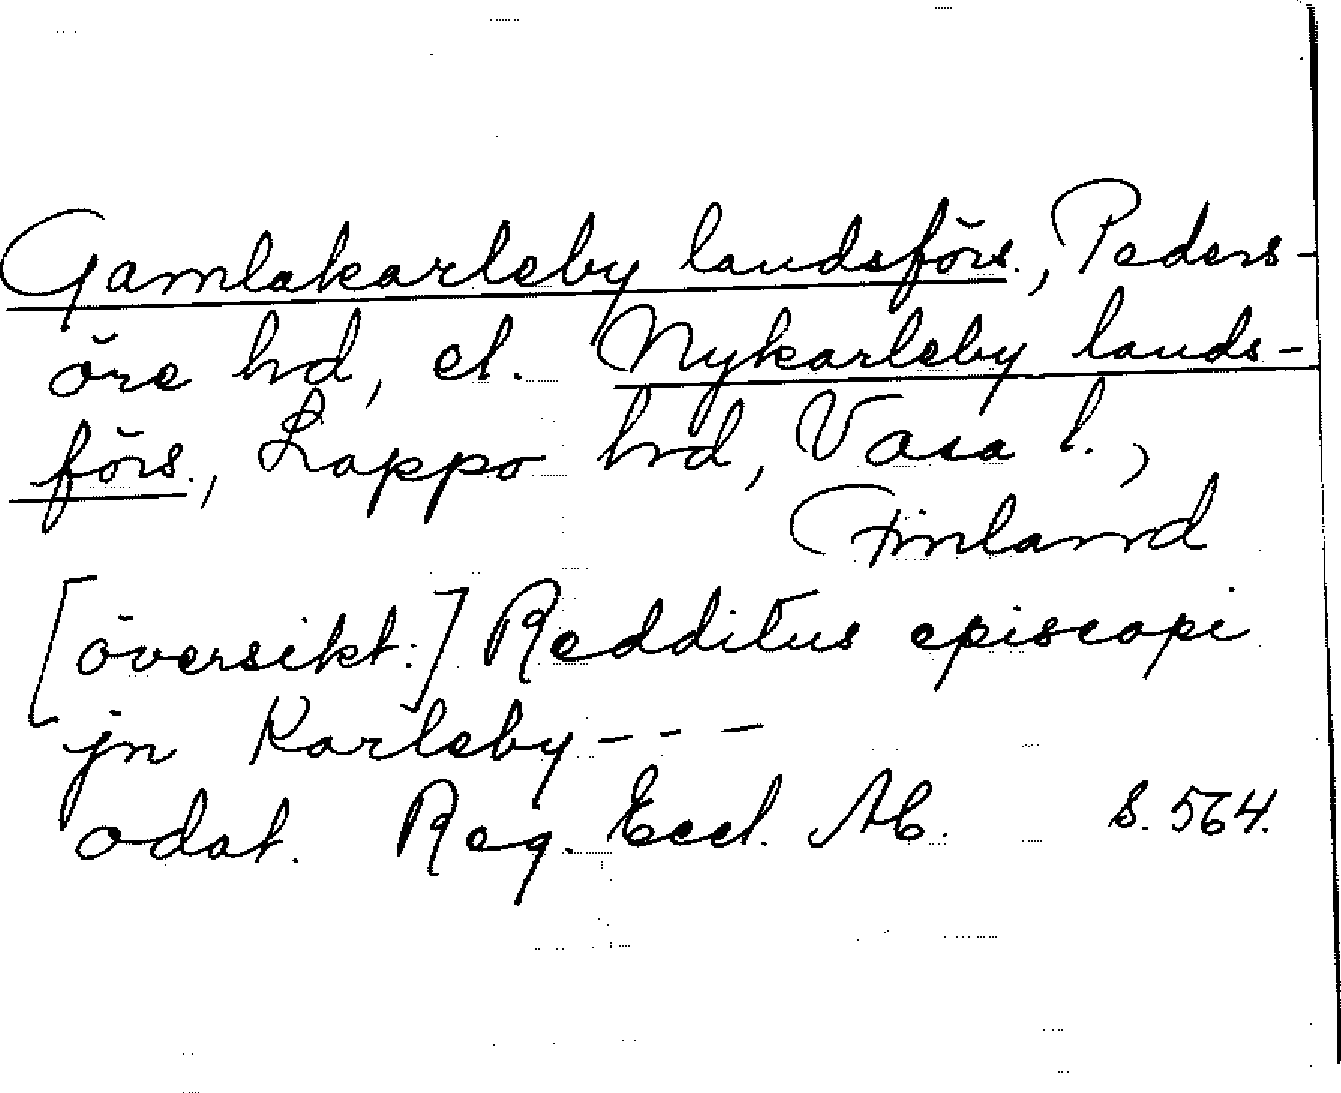 Gamlakarleby landsförs., Peders-
öre hd, el. Nykarleby lands-
förs., Lappo hd, Vasa l.,
Finland
[översikt:] Redditus episcopi
jn Karleby - - -
odat. Reg. Eccl. Ab. s. 564.